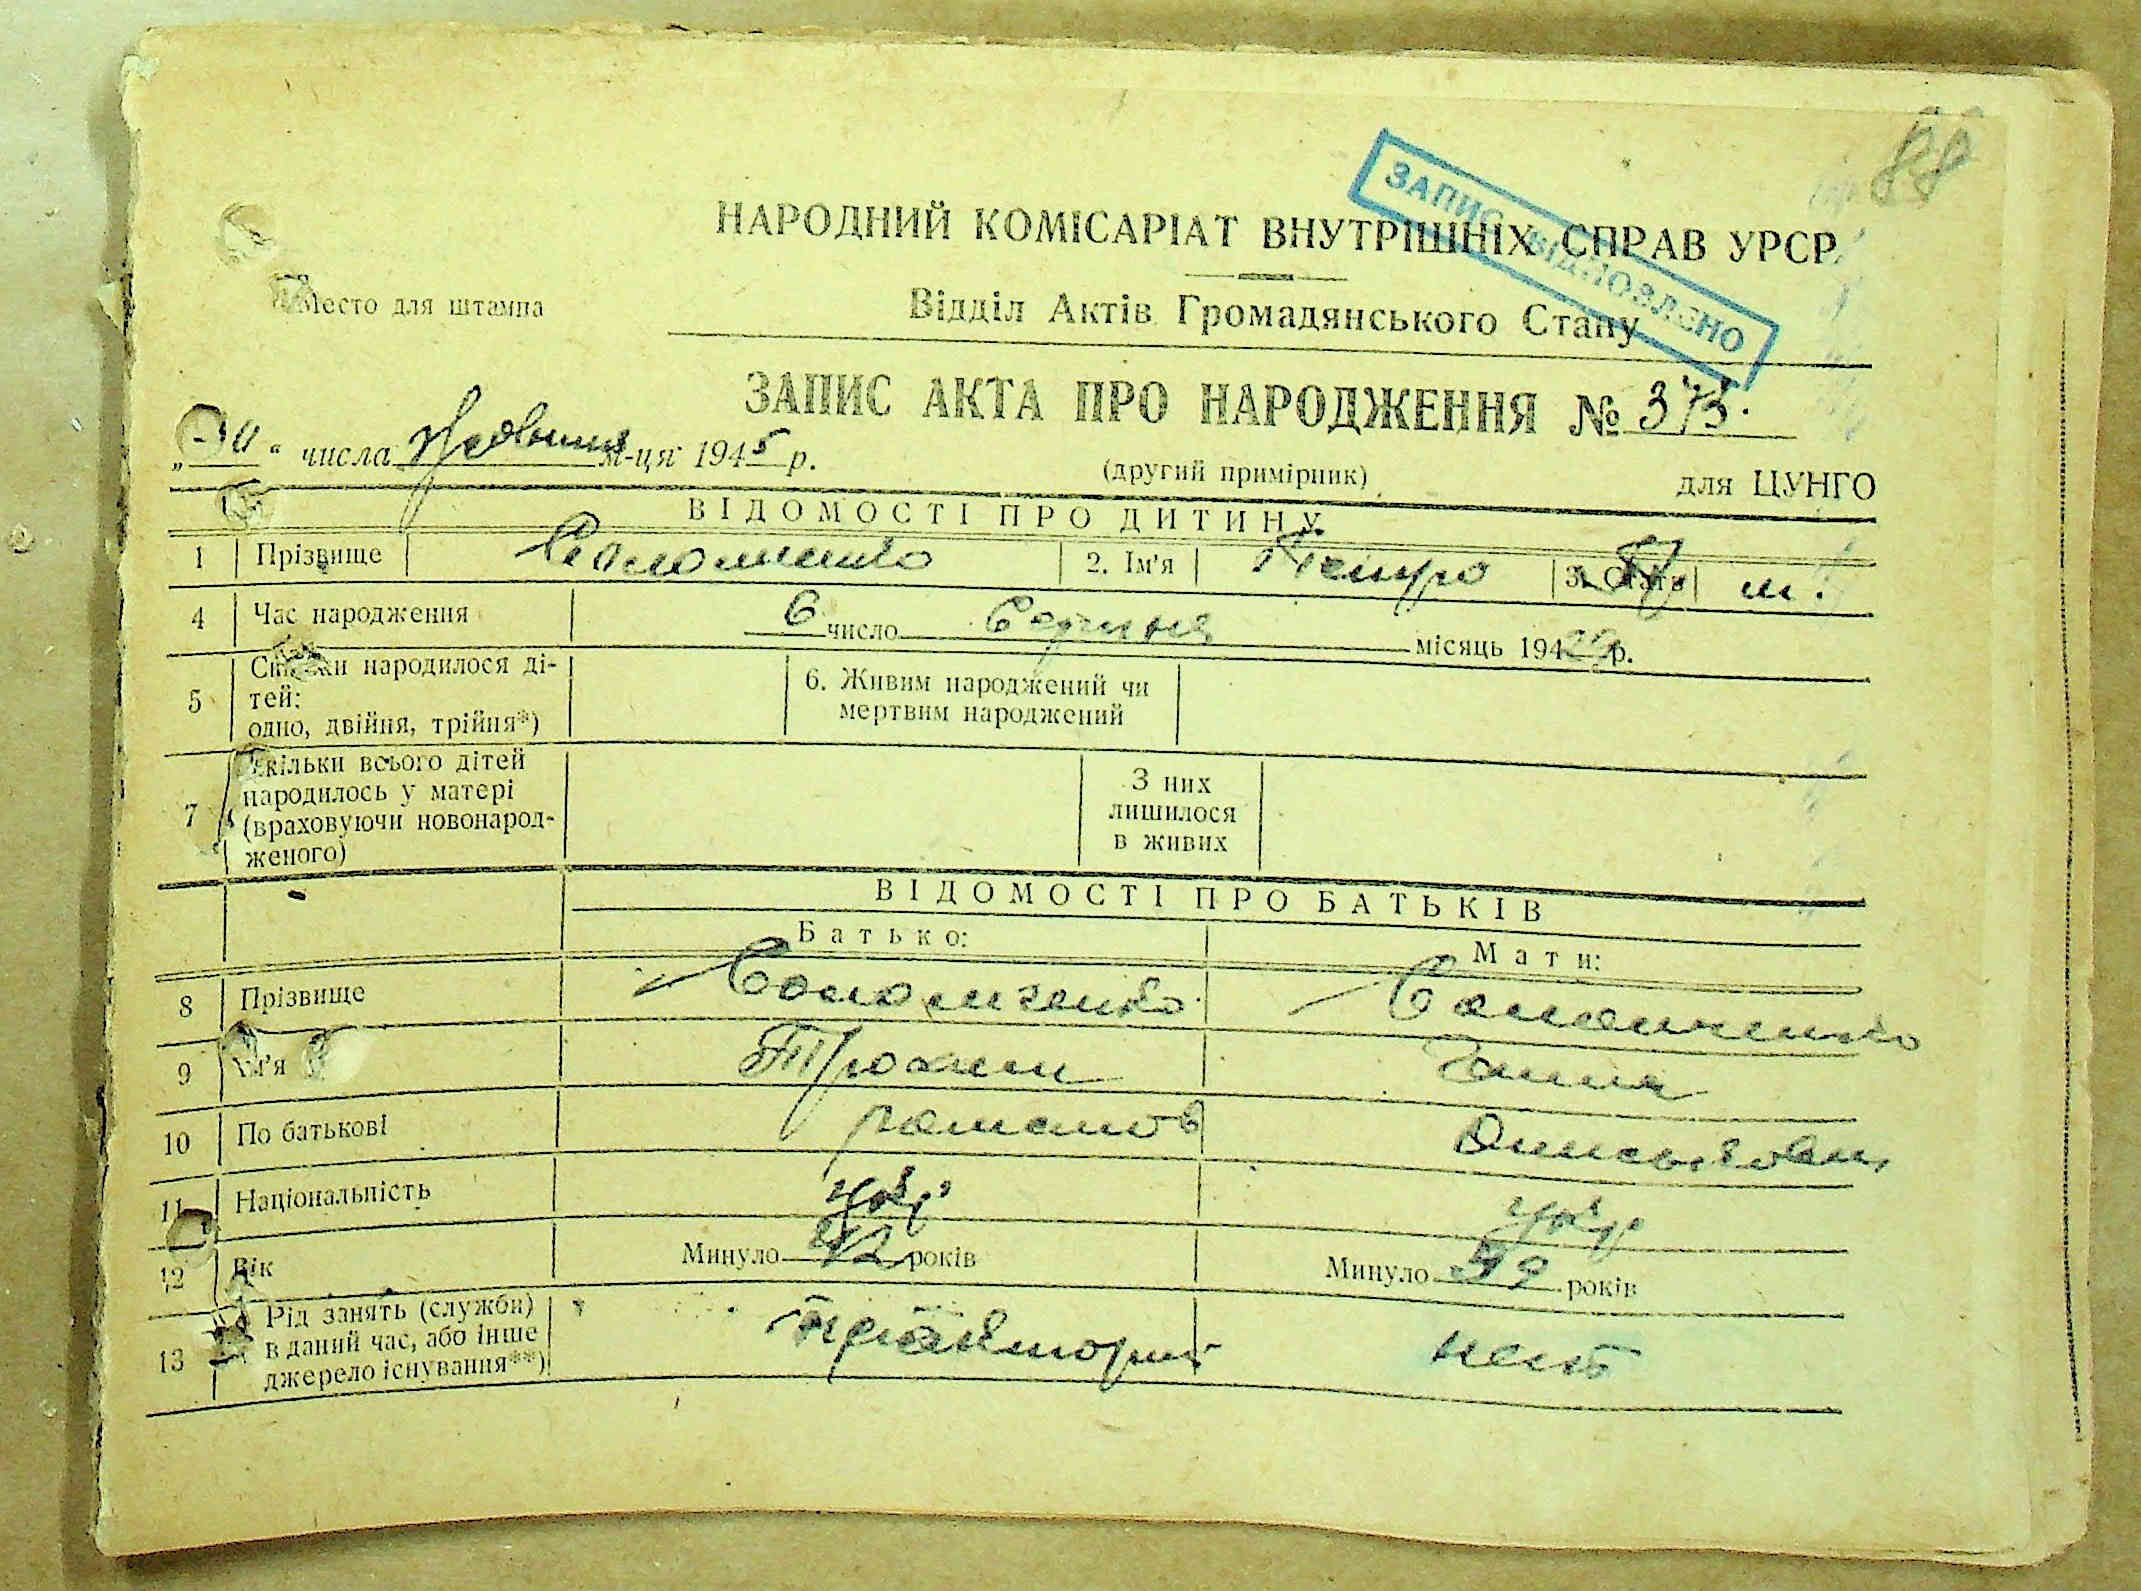 88
ЗАПИС ВІДНОВЛЕНО
НАРОДНИЙ КОМІСАРІАТ ВНУТРІШНІХ СПРАВ УРСР
Место для штампа
Відділ Актів Громадянського Стану
ЗАПИС АКТА ПРО НАРОДЖЕННЯ № 373.
числа м-ця 1945 р.
(другий примірник)
для ЦУНГО
ВІДОМОСТІ ПРО ДИТИНУ
1 Прізвище 2. Ім'я Петро 3. Стать
4 Час народження 6 число Серпня місяць 194 р.
5 Скільки народилося ді-
тей:
одно, двійня, трійня*)
6. Живим народжений чи
мертвим народжений
7 Скільки всього дітей
народилось у матері
(враховуючи новонарод-
женого)
З них
лишилося
в живих
ВІДОМОСТІ ПРО БАТЬКІВ
Батько: Мати:
8 Прізвище
9 Ім'я Трохим Ганна
10 По батькові
11 Національність укр укр
12 Вік Минуло 42 років Минуло 39 років
13 Рід занять (служби)
в даний час, або інше
джерело існування**)